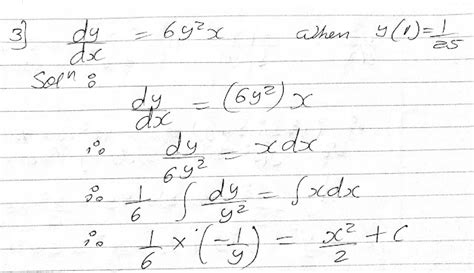 3] dy/dx = 6y²x when y(1) = 1/25
Solⁿ :
dy/dx = (6y²) x
∴ dy/6y² = x dx
∴ 1/6 ∫ dy/y² = ∫ x dx
∴ 1/6 × (-1/y) = x²/2 + C